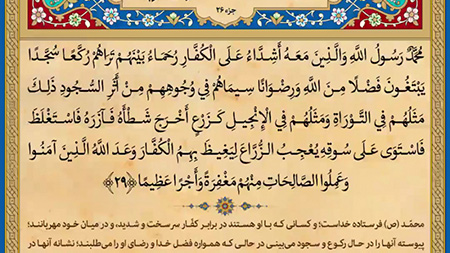 جزء ۲۶
مُحَمَّدٌ رَسُولُ اللَّهِ وَالَّذِينَ مَعَهُ أَشِدَّاءُ عَلَى الْكُفَّارِ رُحَمَاءُ بَيْنَهُمْ تَرَاهُمْ رُكَّعًا سُجَّدًا
يَبْتَغُونَ فَضْلًا مِنَ اللَّهِ وَرِضْوَانًا سِيمَاهُمْ فِي وُجُوهِهِمْ مِنْ أَثَرِ السُّجُودِ ذَلِكَ
مَثَلُهُمْ فِي التَّوْرَاةِ وَمَثَلُهُمْ فِي الْإِنْجِيلِ كَزَرْعٍ أَخْرَجَ شَطْأَهُ فَآزَرَهُ فَاسْتَغْلَظَ
فَاسْتَوَى عَلَى سُوقِهِ يُعْجِبُ الزُّرَّاعَ لِيَغِيظَ بِهِمُ الْكُفَّارَ وَعَدَ اللَّهُ الَّذِينَ آمَنُوا
وَعَمِلُوا الصَّالِحَاتِ مِنْهُمْ مَغْفِرَةً وَأَجْرًا عَظِيمًا ﴿۲۹﴾
محمّد (ص) فرستاده خداست؛ و کسانی که با او هستند در برابر کفّار سرسخت و شدید، و در میان خود مهربانند؛
پیوسته آنها را در حال رکوع و سجود می‌بینی در حالی که همواره فضل خدا و رضای او را می‌طلبند؛ نشانه آنها در